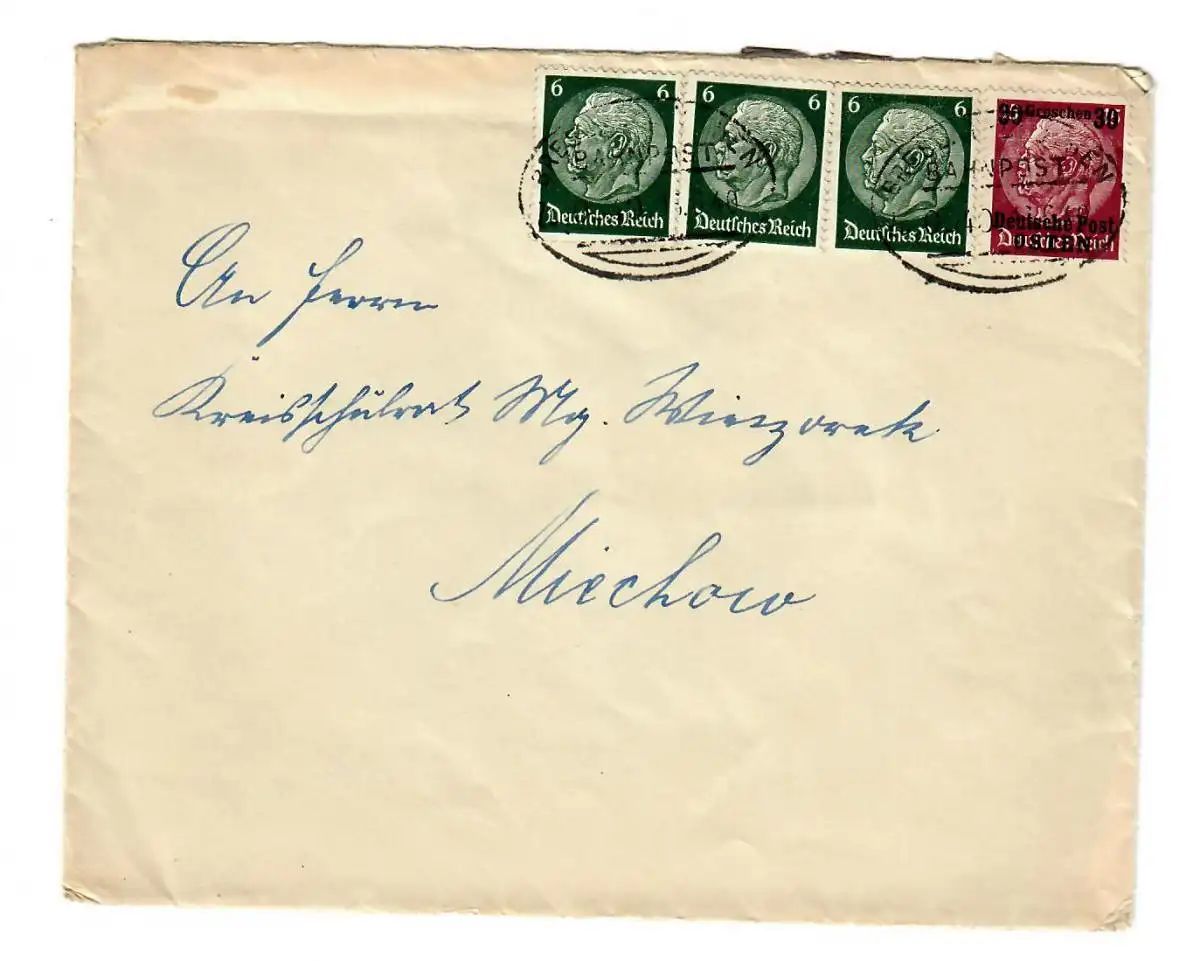 6 6 6 6 6 6 30 Groschen 30
BAHNPOST BAHNPOST
Deutsches Reich Deutsches Reich Deutsches Reich Deutsche Post
OSTEN
Deutsches Reich
An Herrn
Kreisschulrat Mg. Wieczorek
Miechow